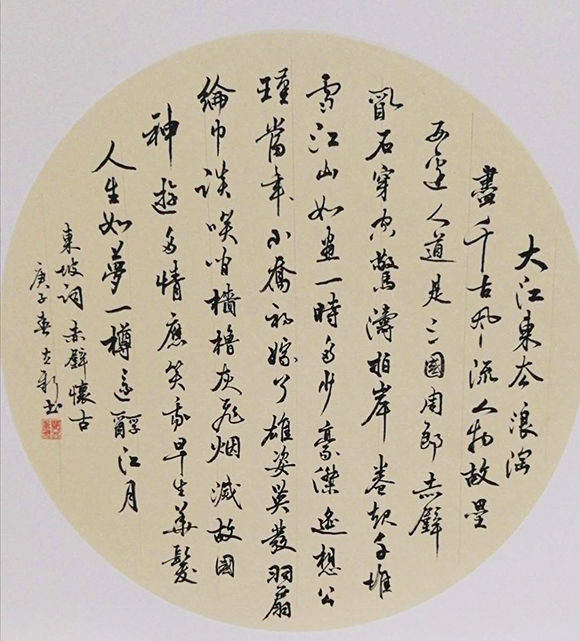 大江東去浪淘
盡千古風流人物故壘
西邊人道是三國周郎赤壁
亂石穿空驚濤拍岸卷起千堆
雪江山如畫一時多少豪傑遙想公
瑾當年小喬初嫁了雄姿英發羽扇
綸巾談咲間檣櫓灰飛烟滅故國
神遊多情應笑我早生華髮
人生如夢一樽還酹江月
東坡詞赤壁懷古
庚子春